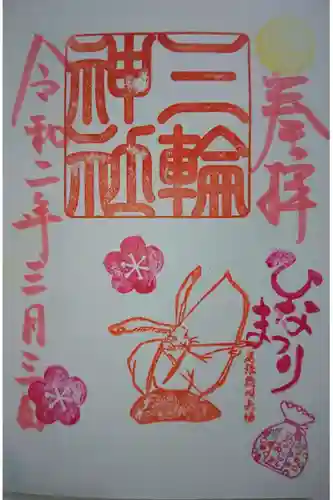 奉拝
三輪
神社
ひな
まつり
令和二年三月三日